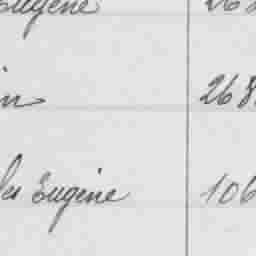 Eugène
in 268
les Eugène 106